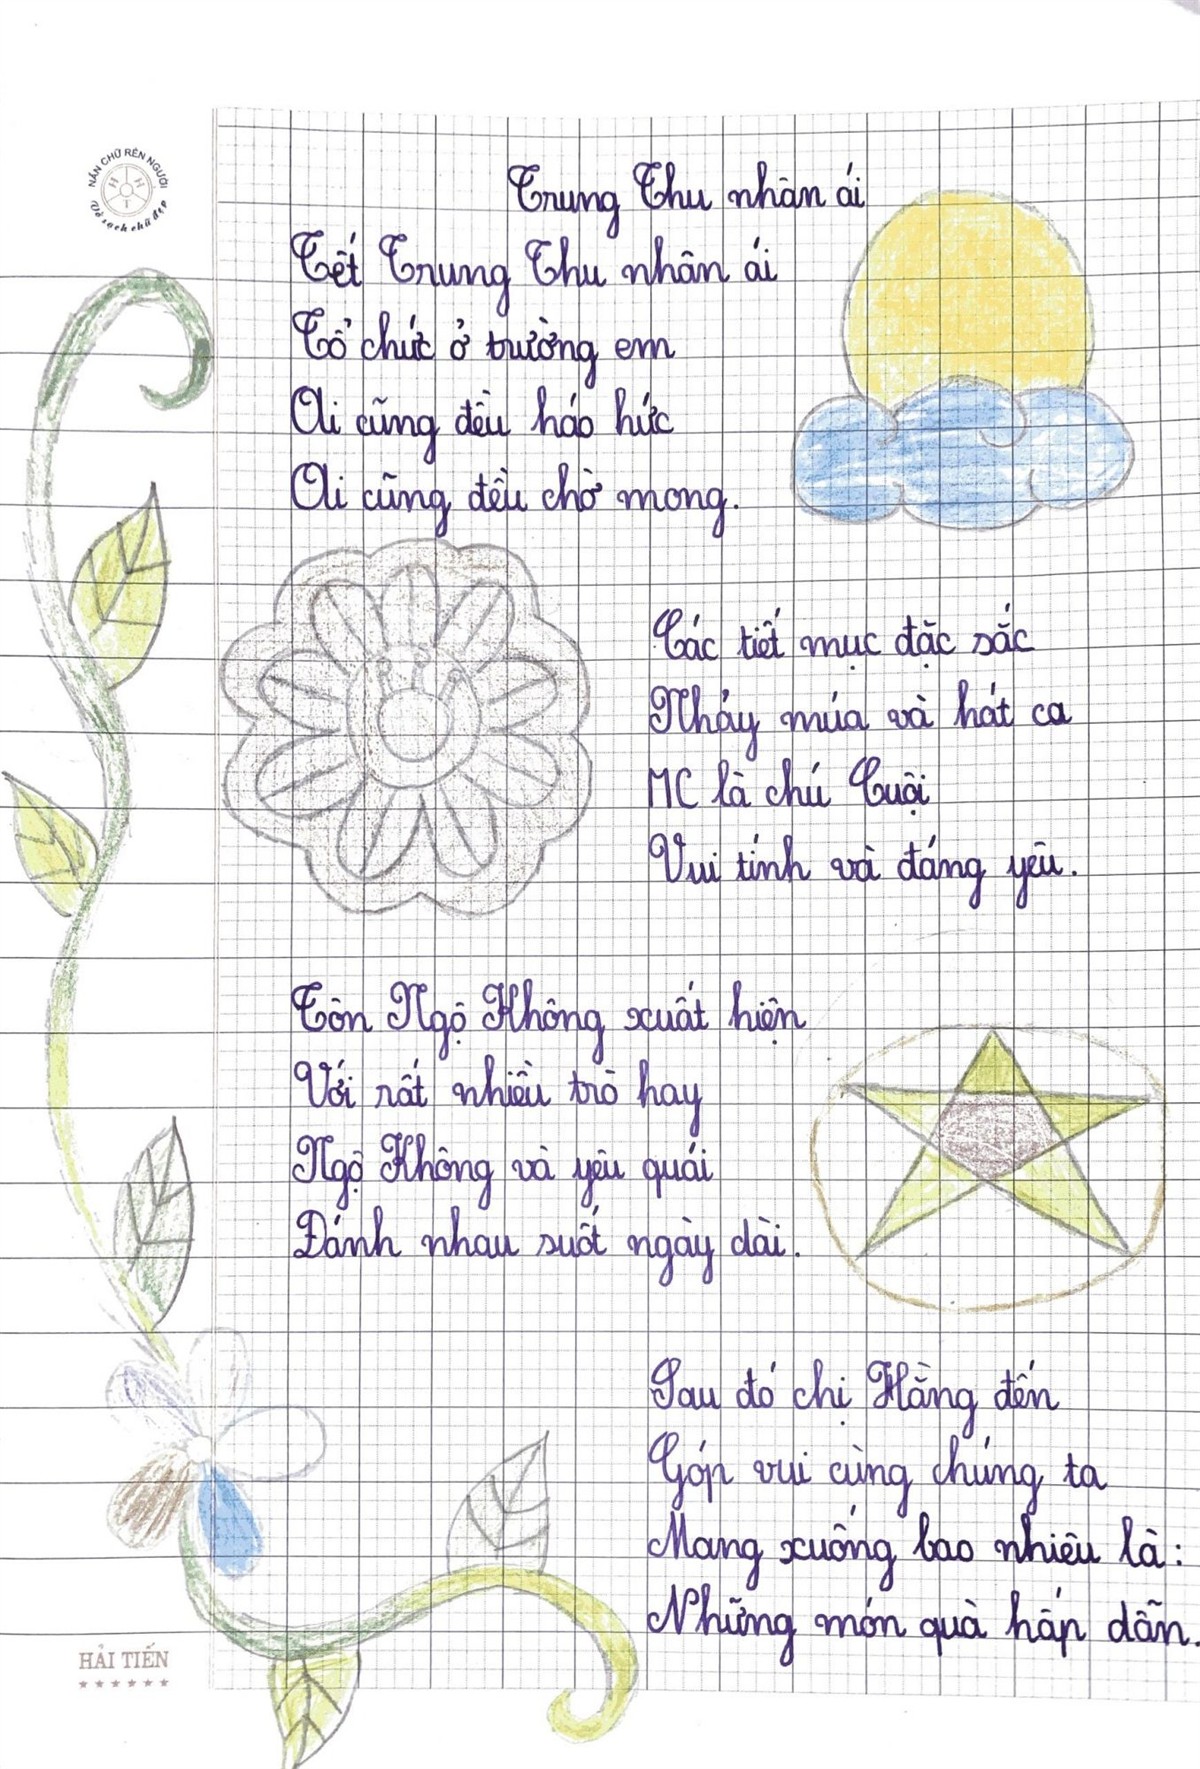 NẮN CHỮ RÈN NGƯỜI
Vở sạch chữ đẹp
Trung Thu nhân ái
Tết Trung Thu nhân ái
Tổ chức ở trường em
Ai cũng đều háo hức
Ai cũng đều chờ mong.
Các tiết mục đặc sắc
Nhảy múa và hát ca
MC là chú Cuội
Vui tính và đáng yêu.
Tôn Ngộ Không xuất hiện
Với rất nhiều trò hay
Ngộ Không và yêu quái
Đánh nhau suốt ngày dài.
Sau đó chị Hằng đến
Góp vui cùng chúng ta
Mang xuống bao nhiêu là:
Những món quà hấp dẫn.
HẢI TIẾN